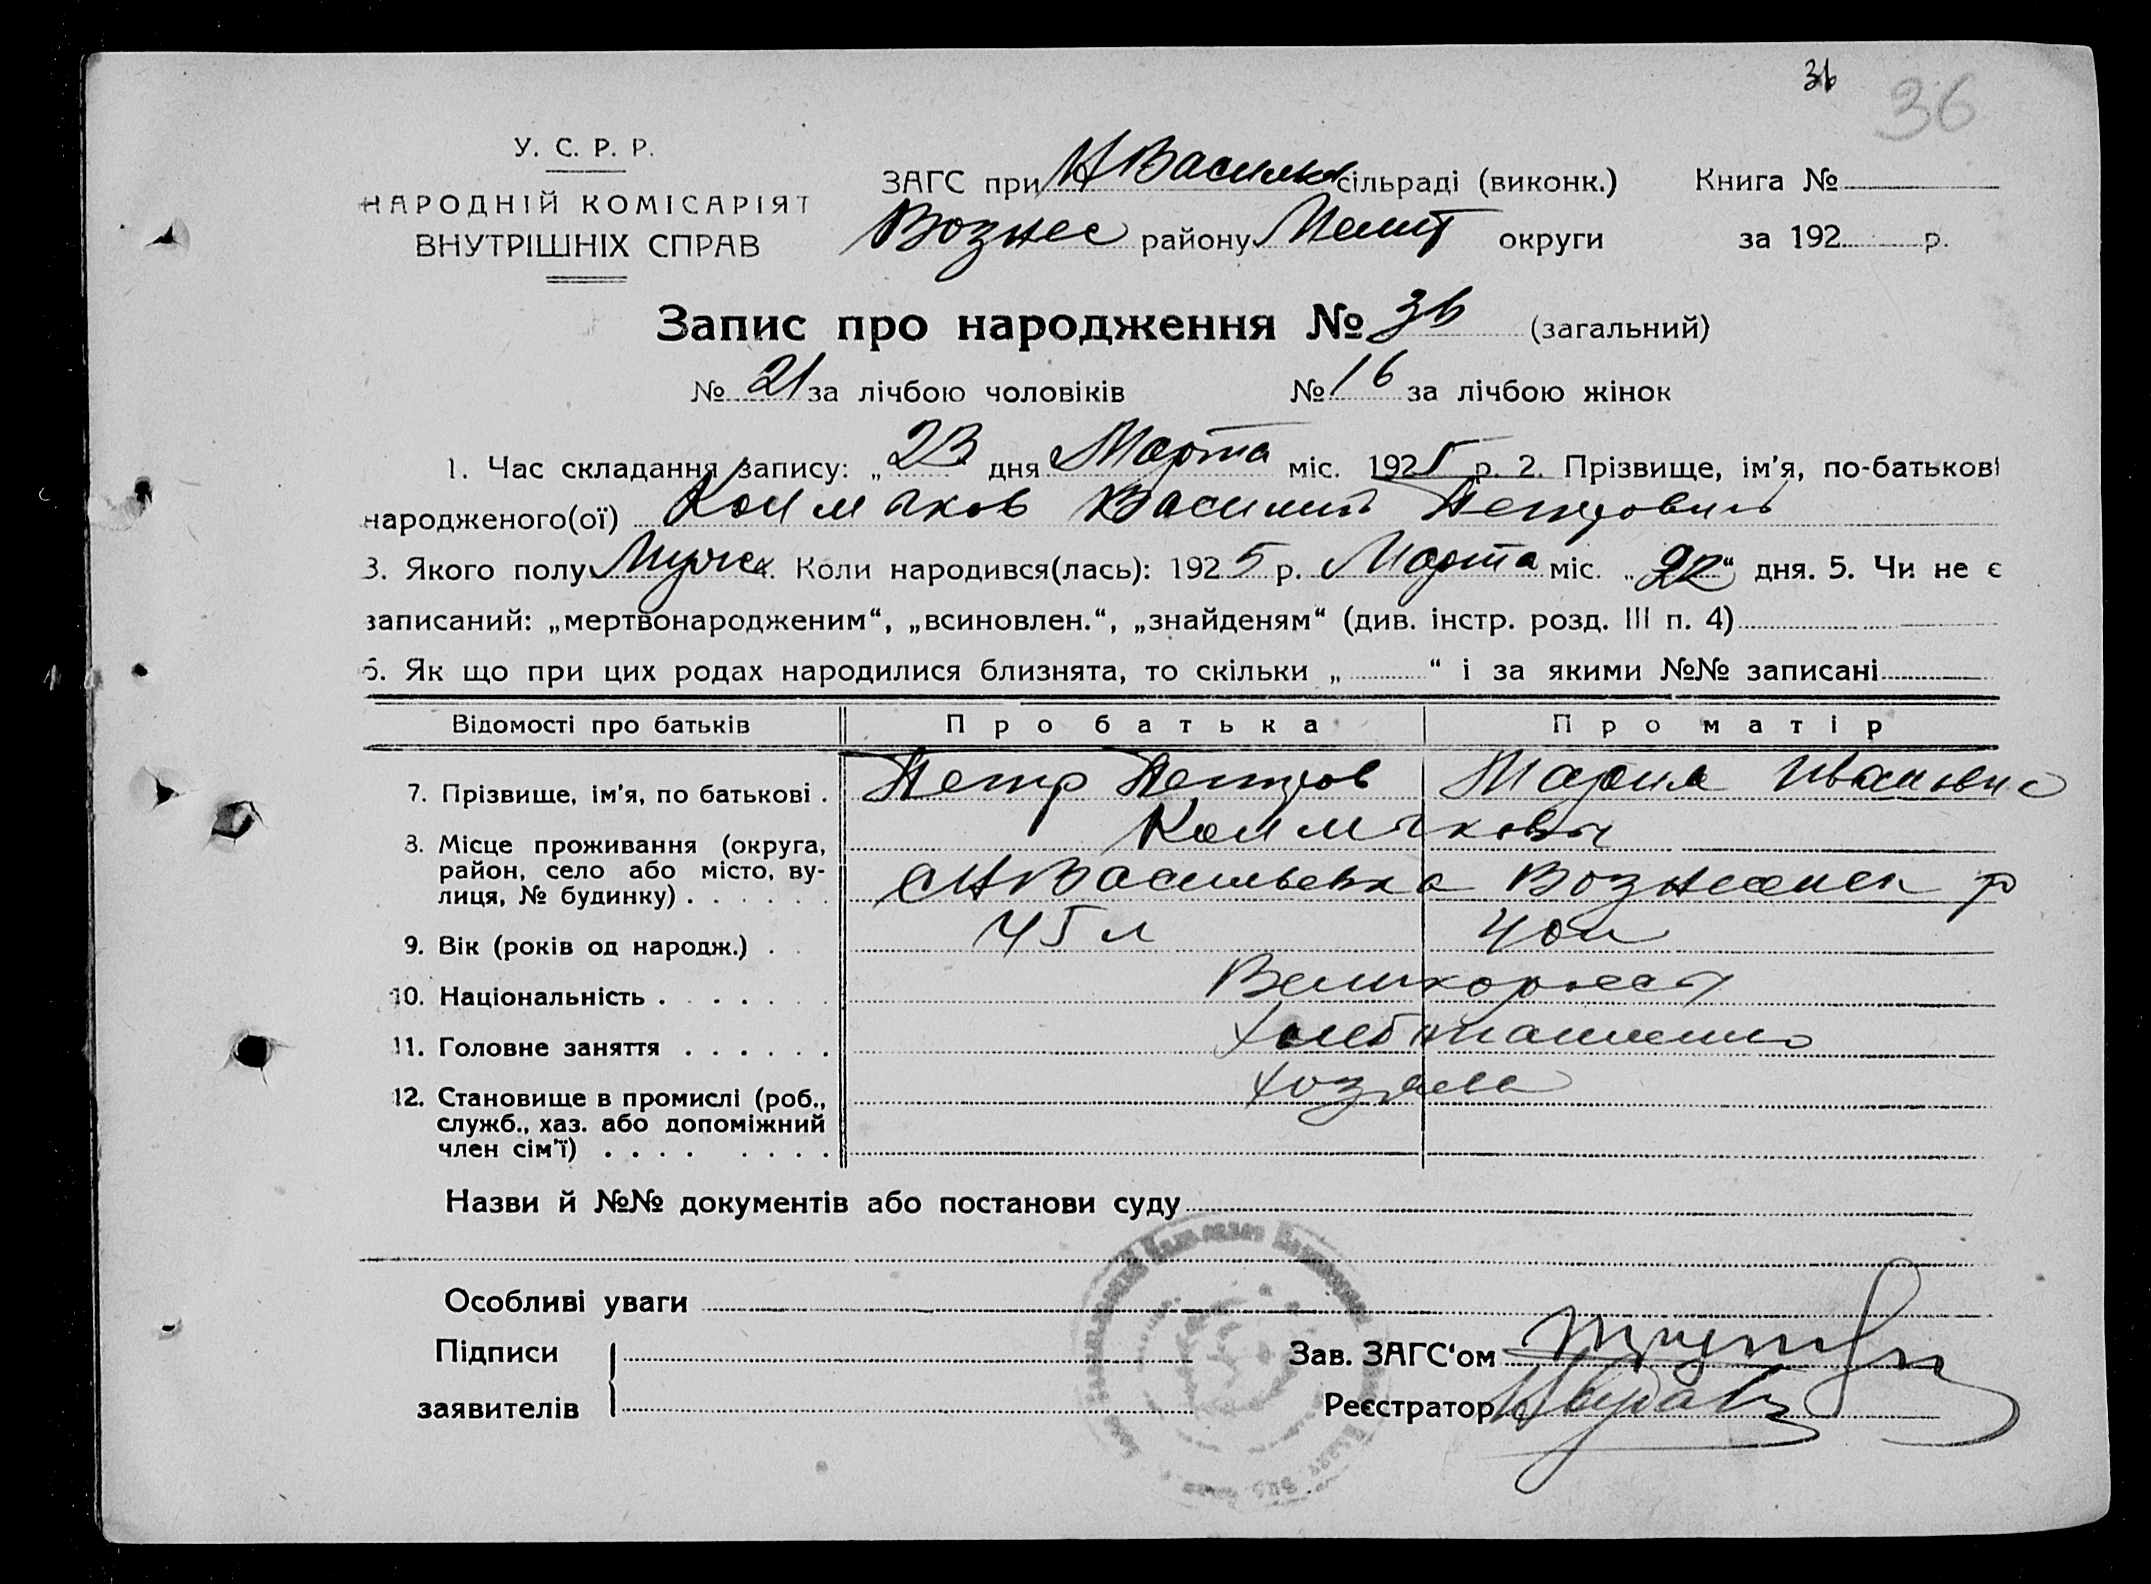 36 36
У. С. Р. Р.
НАРОДНІЙ КОМІСАРІЯТ
ВНУТРІШНІХ СПРАВ
ЗАГС при Н Василь сільраді (виконк.) Книга №
Вознес району Мелит округи за 192 р.
Запис про народження № 36 (загальний)
№ 21 за лічбою чоловіків № 16 за лічбою жінок
1. Час складання запису: „ 23 дня Марта міс. 1925 р. 2. Прізвище, ім'я, по-батькові
народженого(ої) Колмыков Василий Петрович
3. Якого полу Мужск. Коли народився(лась): 1925 р. Марта міс. „22“ дня. 5. Чи не є
записаний: „мертвонародженим“, „всиновлен.“, „знайденям“ (див. інстр. розд. III п. 4)
6. Як що при цих родах народилися близнята, то скільки „ “ і за якими №№ записані
Відомості про батьків Про батька Про матір
7. Прізвище, ім'я, по батькові . Петр Петров Мария Ивановна
Колмыковы
8. Місце проживання (округа,
район, село або місто, ву-
лиця, № будинку) . . . . . . с Н Васильевка Вознесенск р
9. Вік (років од народж.) . . 45 л 40 л
10. Національність . . . . . Великороссы
11. Головне заняття . . . . . . Хлебопашество
12. Становище в промислі (роб., хозяева
служб., хаз. або допоміжний
член сім'ї) . . . . . . . .
Назви й №№ документів або постанови суду
Особливі уваги
Підписи
заявителів
Зав. ЗАГС'ом
Реєстратор